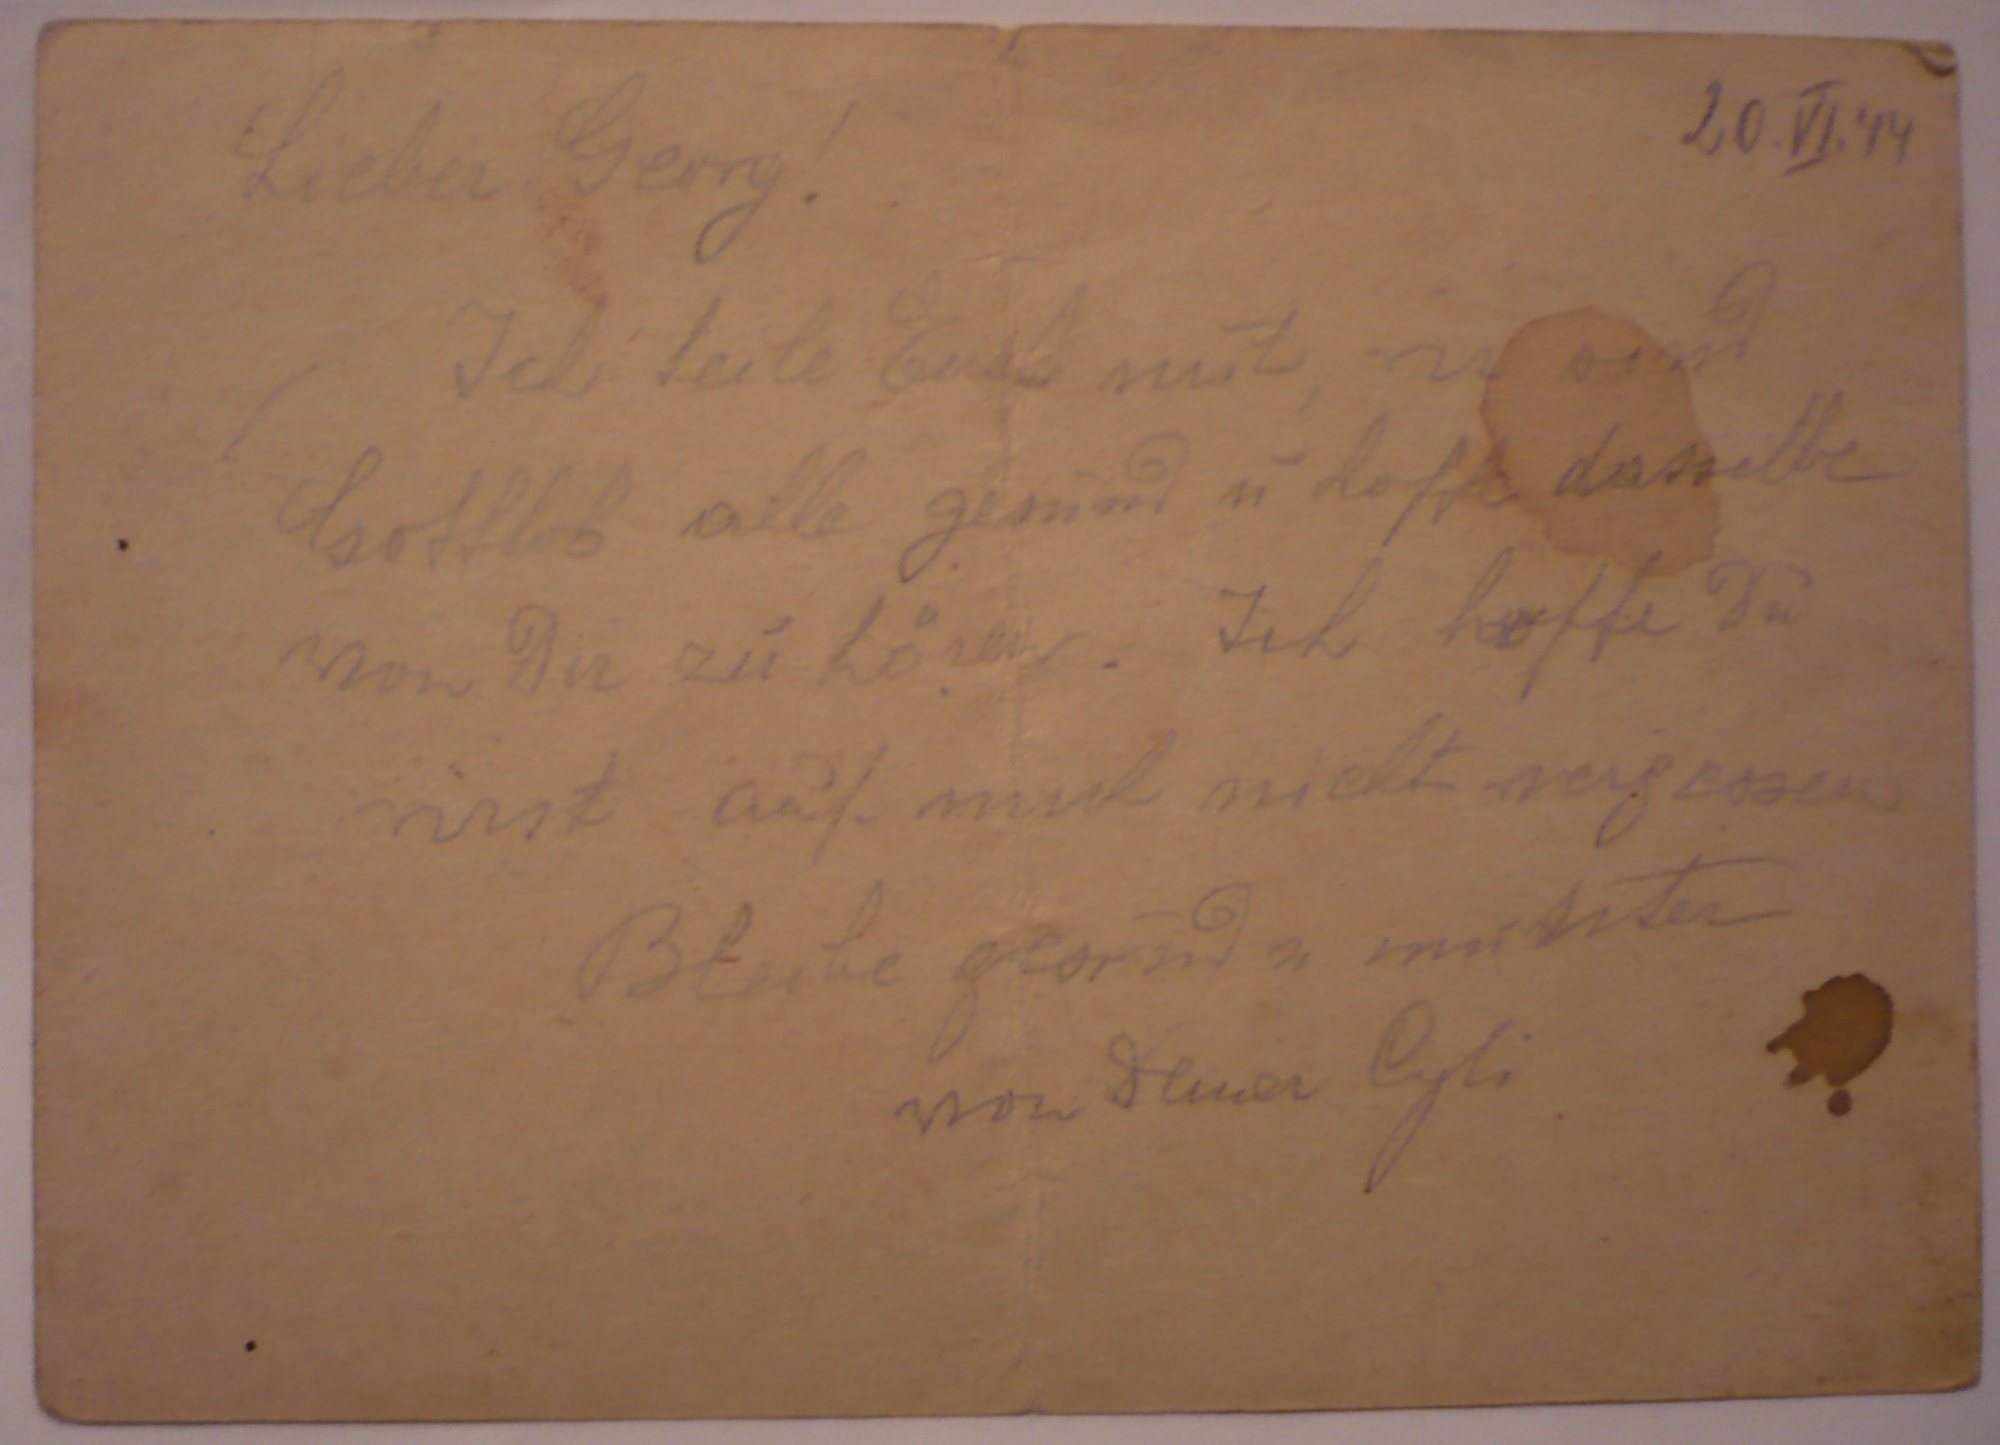 20.VI.44
Lieber Georg!
Ich teile Euch mit, wir sind
Gottlob alle gesund u hoffe dasselbe
von Dir zu hören. Ich hoffe Du
wirst auf mich nicht vergessen
Bleibe gesund u munter
von Deiner Cyli